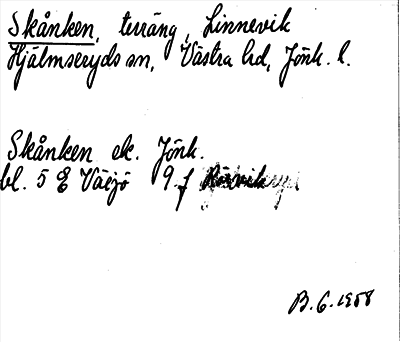 Skånken, terräng, Linnevik
Hjälmseryds sn, Västra hd, Jönk. l.
Skånken ek. Jönk.
bl. 5 E Växjö 9 f
B. G. 1958